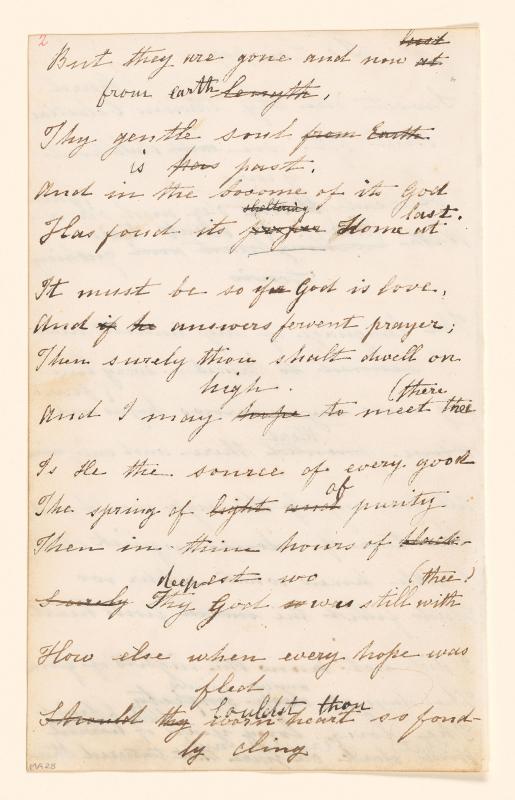 2
But they are gone and now at
from earth
Thy gentle soul from Earth
is past.
And in the bosome of its God
sheltering
Has foud its proper Home at last.
It must be so if God is love,
And if he answers fervent prayer;
Then surely thou shalt dwell on
high.
And I may hope to meet thee (there
Is He the source of every good
The spring of light and of purity
Then in thine hours of black-
deepest wo
Surely Thy God was still with (thee?
How else when every hope was
fled
Should thy couldst thou
worn heart so fond-
ly cling
MA28